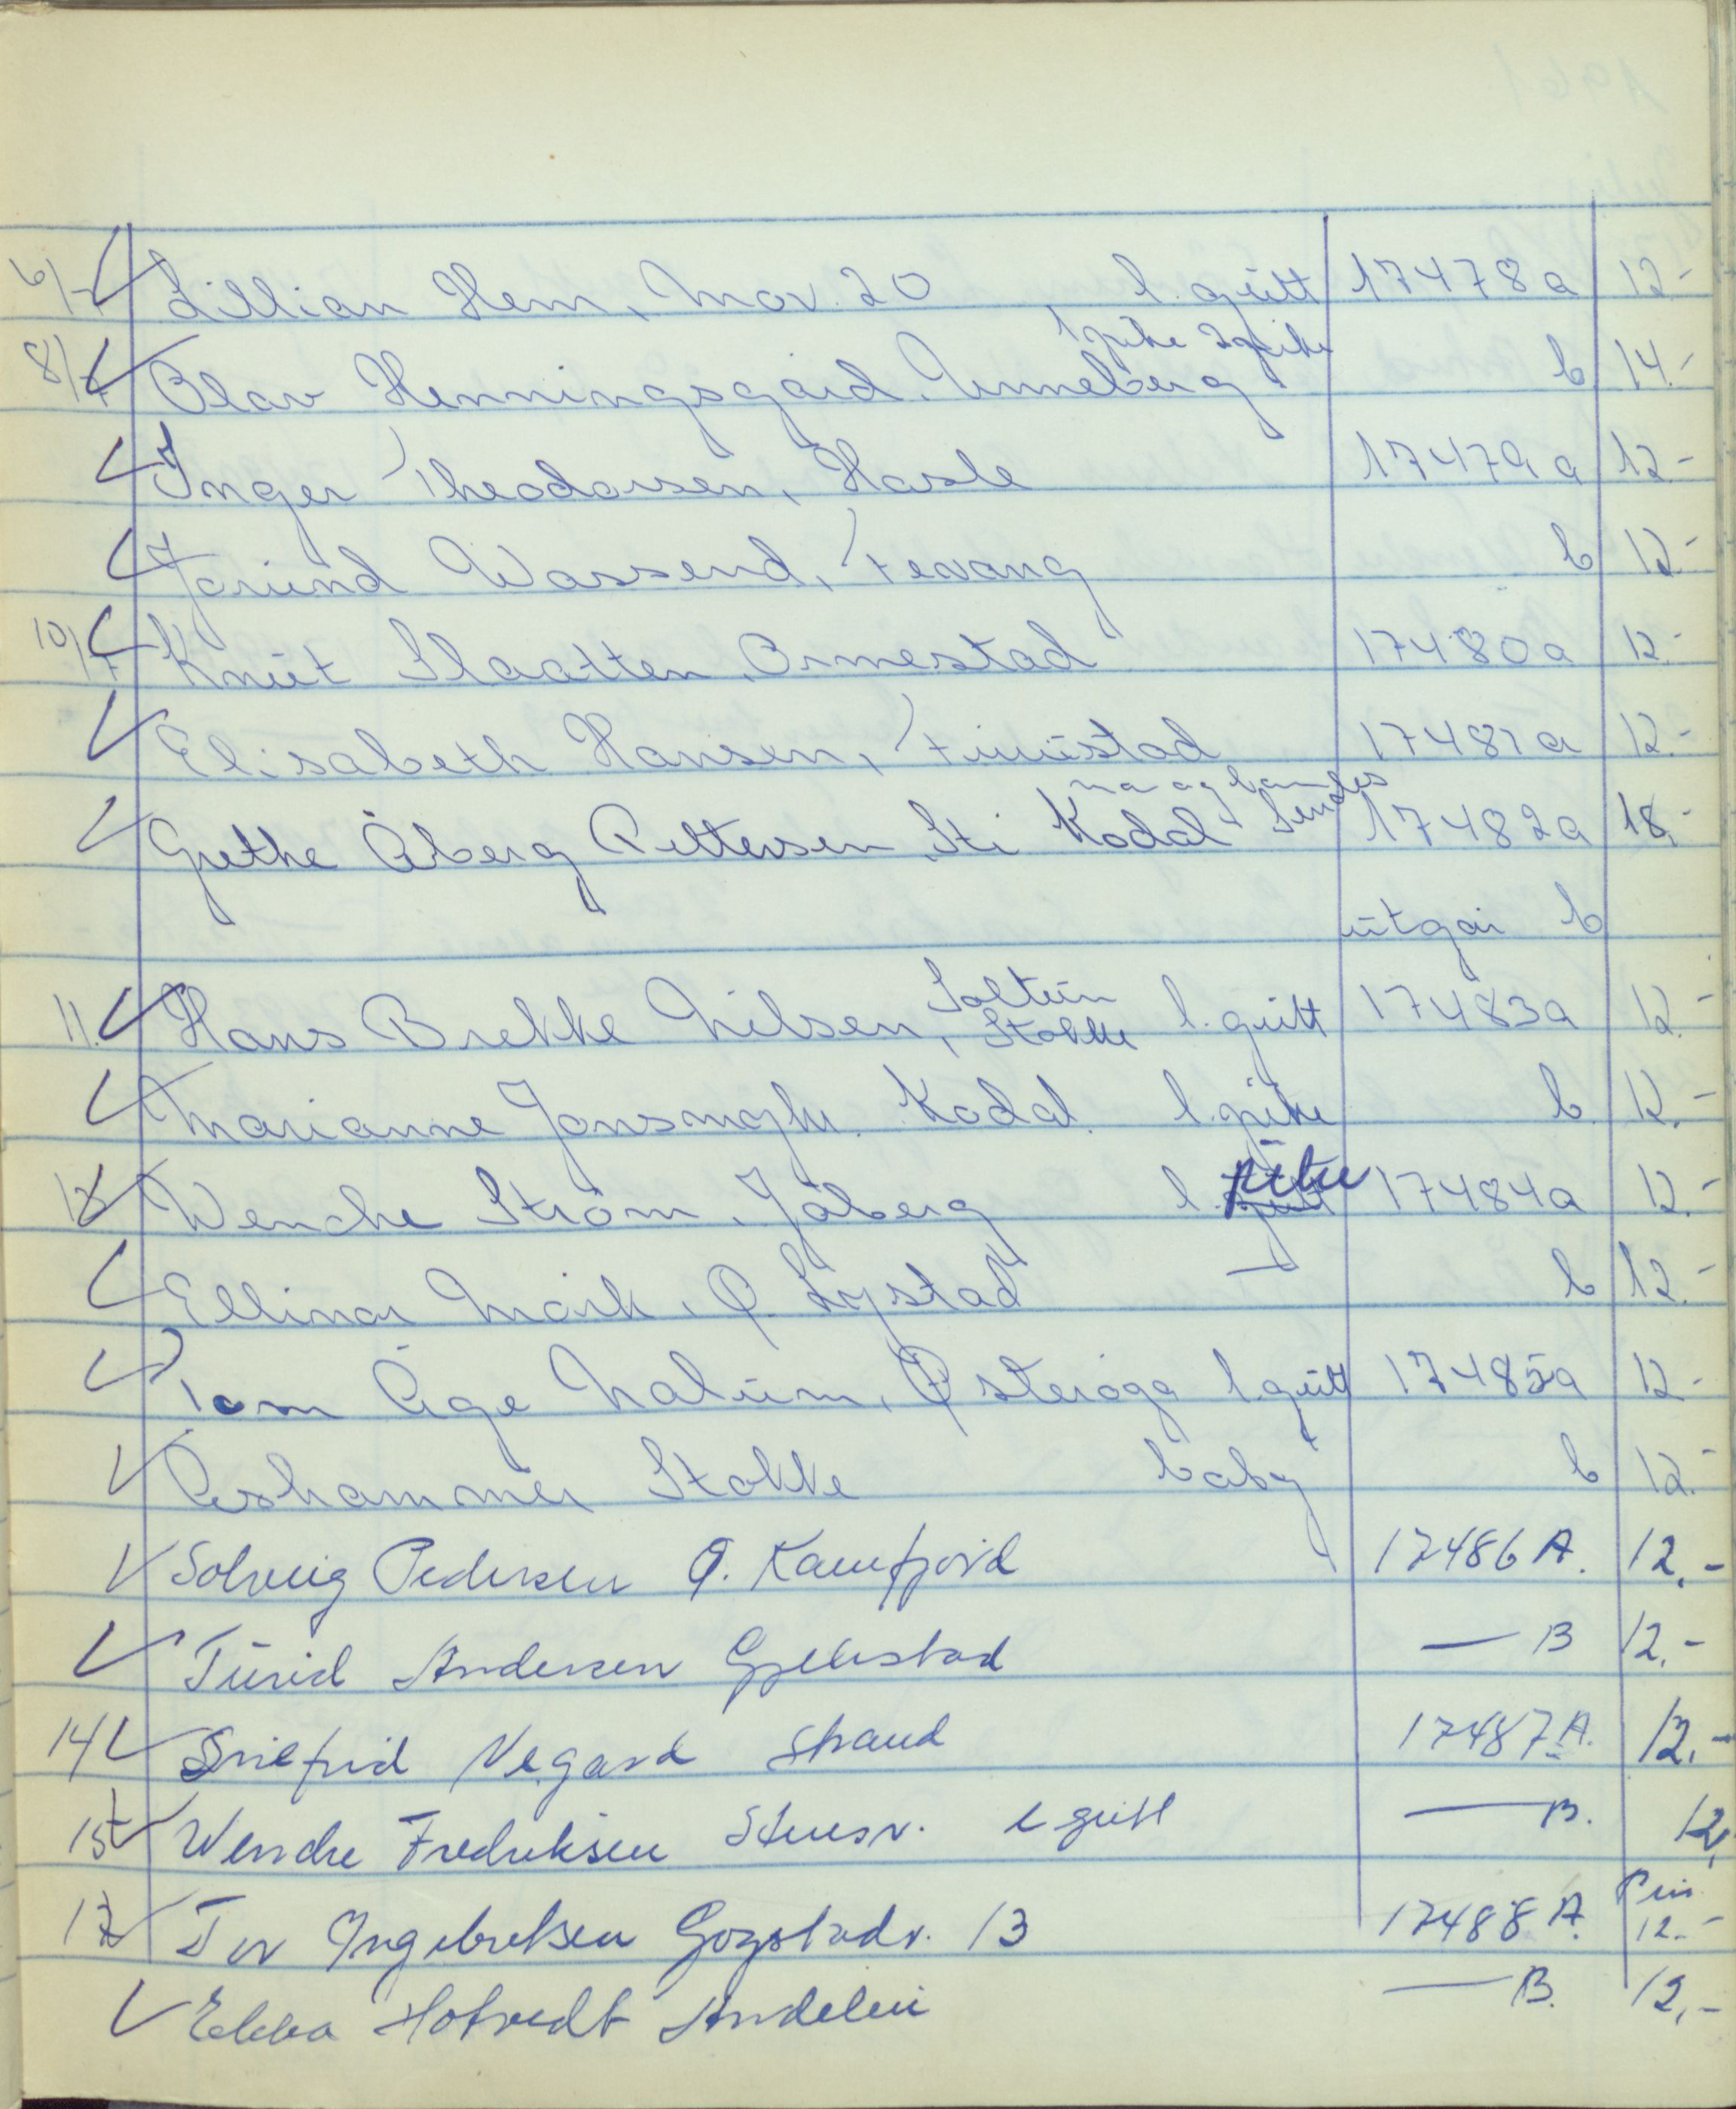 6/7 Lillian Hem, Mov. 20 l. gutt 17478a 12.-
1 pike 2 pike
8/7 Olav Henningsgård, Unneberg b 14.-
Inger Theodorsen, Hasle 17479a 12.-
Jorund Wassend, Tevang b 12.-
10/7 Knut Slaatten, Ormestad 17480a 12.-
Elisabeth Hansen, 17481a 12.-
Grethe Åberg Pettersen, Sti Kodal Sendes 17482a 18.-
utgår b
11. Hans Brekke Nilsen, Stokke l. gutt 17483a 12.-
Marianne Kodal. l. pike b 12.-
Wenche Strøm, Jåberg l. pike 17484a 12.-
Ellinor Mørk, Ø. Lystad — b 12.-
Tom Åge Malum, Østerøya l. gutt 17485a 12.-
Stokke baby b 12.-
Solveig Pedersen Ø. Kamfjord 17486 A. 12.-
Turid Andersen Gjekstad — B 12.-
14 Vegard Strand 17487 A. 12.-
15 Wenche Fredriksen l gutt — B. 12,
17 Tor Ingebretsen Gogstadv. 13 17488 A. 12.-
Ebba Hotvedt — B. 12,-